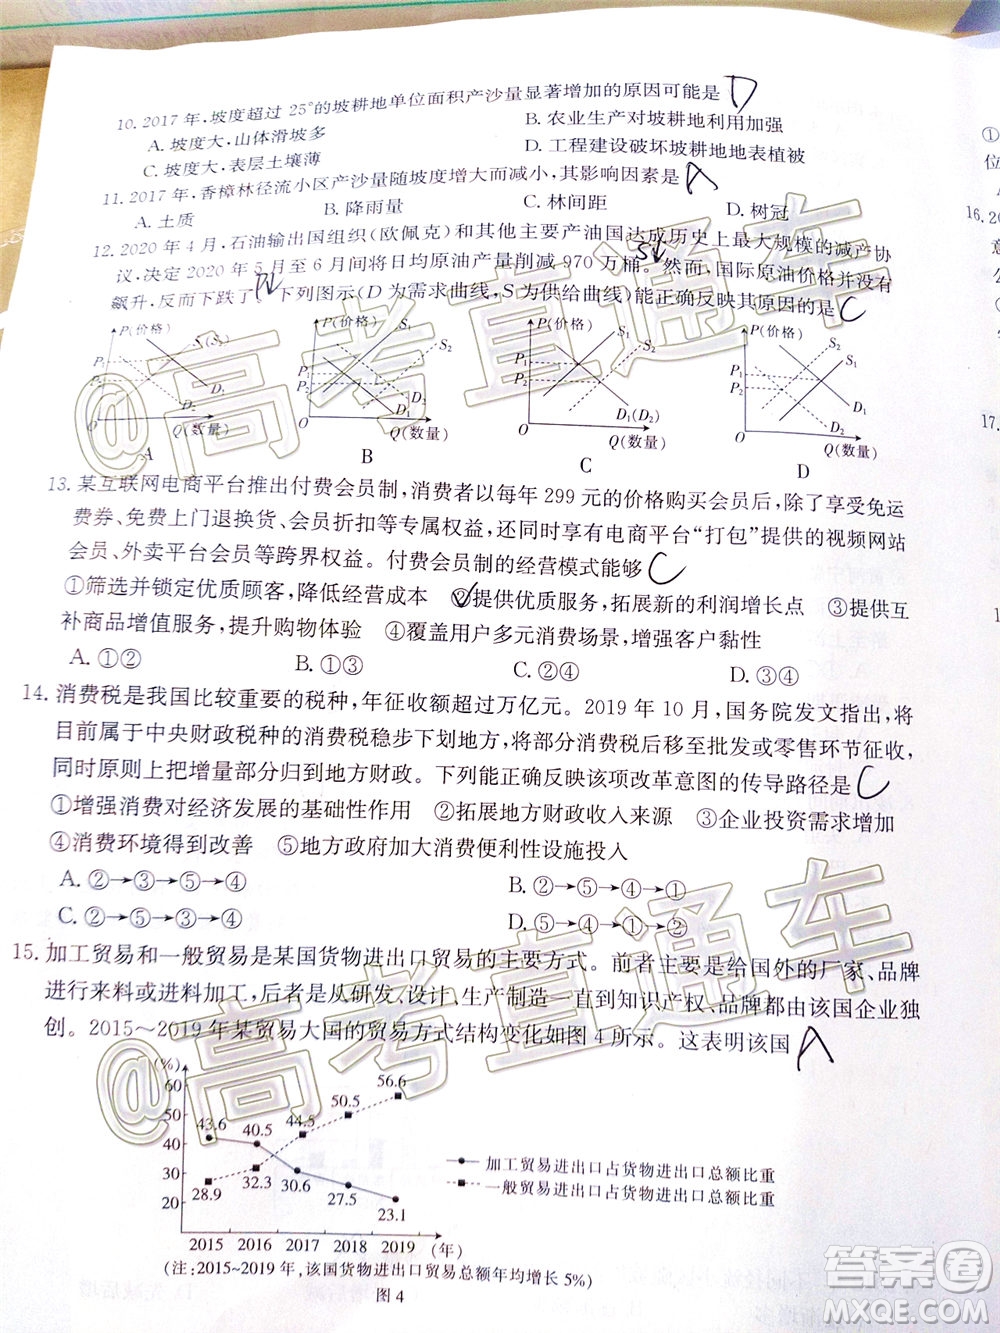 10. 2017 年,坡度超过 25°的坡耕地单位面积产沙量显著增加的原因可能是 D
A. 坡度大,山体滑坡多 B. 农业生产对坡耕地利用加强
C. 坡度大,表层土壤薄 D. 工程建设破坏坡耕地地表植被
11. 2017 年,香樟林径流小区产沙量随坡度增大而减小,其影响因素是 A
A. 土质 B. 降雨量 C. 林间距 D. 树冠
12. 2020 年 4 月,石油输出国组织(欧佩克)和其他主要产油国达成历史上最大规模的减产协
议,决定 2020 年 5 月至 6 月间将日均原油产量削减 970 万桶。然而,国际原油价格并没有
S↓
飙升,反而下跌了。下列图示(D 为需求曲线,S 为供给曲线)能正确反映其原因的是 C
P(价格) P1 P2 D1 D2 O Q(数量) A
P(价格) P1 P2 S1 S2 D1 D2 O Q(数量) B
P(价格) P1 P2 S1 S2 D1(D2) O Q(数量) C
P(价格) P1 P2 S1 S2 D1 D2 O Q(数量) D
13. 某互联网电商平台推出付费会员制,消费者以每年 299 元的价格购买会员后,除了享受免运
费券、免费上门退换货、会员折扣等专属权益,还同时享有电商平台“打包”提供的视频网站
会员、外卖平台会员等跨界权益。付费会员制的经营模式能够 C
①筛选并锁定优质顾客,降低经营成本 ②提供优质服务,拓展新的利润增长点 ③提供互
补商品增值服务,提升购物体验 ④覆盖用户多元消费场景,增强客户黏性
A. ①② B. ①③ C. ②④ D. ③④
14. 消费税是我国比较重要的税种,年征收额超过万亿元。2019 年 10 月,国务院发文指出,将
目前属于中央财政税种的消费税稳步下划地方,将部分消费税后移至批发或零售环节征收,
同时原则上把增量部分归到地方财政。下列能正确反映该项改革意图的传导路径是 C
①增强消费对经济发展的基础性作用 ②拓展地方财政收入来源 ③企业投资需求增加
④消费环境得到改善 ⑤地方政府加大消费便利性设施投入
A. ②→③→⑤→④ B. ②→⑤→④→①
C. ②→⑤→③→④ D. ⑤→④→①→②
15. 加工贸易和一般贸易是某国货物进出口贸易的主要方式。前者主要是给国外的厂家、品牌
进行来料或进料加工,后者是从研发、设计、生产制造一直到知识产权、品牌都由该国企业独
创。2015～2019 年某贸易大国的贸易方式结构变化如图 4 所示。这表明该国 A
(%)
60 50 40 30 20
43.6 40.5 30.6 27.5 23.1
28.9 32.3 44.5 50.5 56.6
加工贸易进出口占货物进出口总额比重
一般贸易进出口占货物进出口总额比重
2015 2016 2017 2018 2019 (年)
(注:2015~2019 年,该国货物进出口贸易总额年均增长 5%)
图 4
@高考直通车
@高考直通车
答案圈
MXQE.COM
①
位
16.
意
公
17.